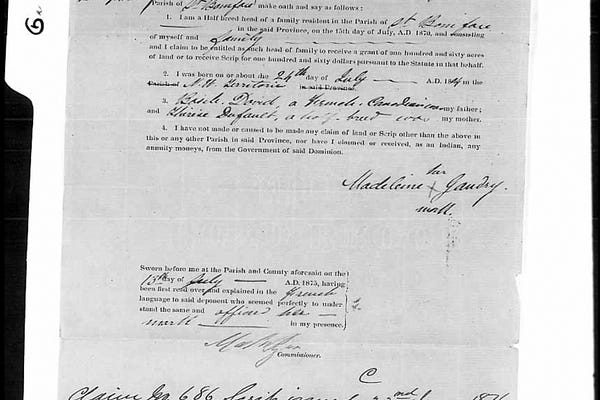 Parish of St Boniface make oath and say as follows:
1. I am a Half breed head of a family resident in the Parish of St Boniface
in the said Province, on the 15th day of July, A.D. 1870, and consisting
of myself and family
and I claim to be entitled as such head of family to receive a grant of one hundred and sixty acres
of land or to receive Scrip for one hundred and sixty dollars pursuant to the Statute in that behalf.
2. I was born on or about the 24th day of July A.D. 18 in the
Parish of N. W. Territorie in said Province.
3. Basile David, a French Canadian was my father;
and Thérèse Dufault, a half breed was my mother.
4. I have not made or caused to be made any claim of land or Scrip other than the above in
this or any other Parish in said Province, nor have I claimed or received, as an Indian, any
annuity moneys, from the Government of said Dominion.
her
Madeleine x Gaudry.
mark.
Sworn before me at the Parish and County aforesaid on the
15th day of July A.D. 1875, having
been first read over and explained in the French
language to said deponent who seemed perfectly to under
stand the same and affixed her
mark in my presence.
Commissioner.
Claim No 686 Scrip
C